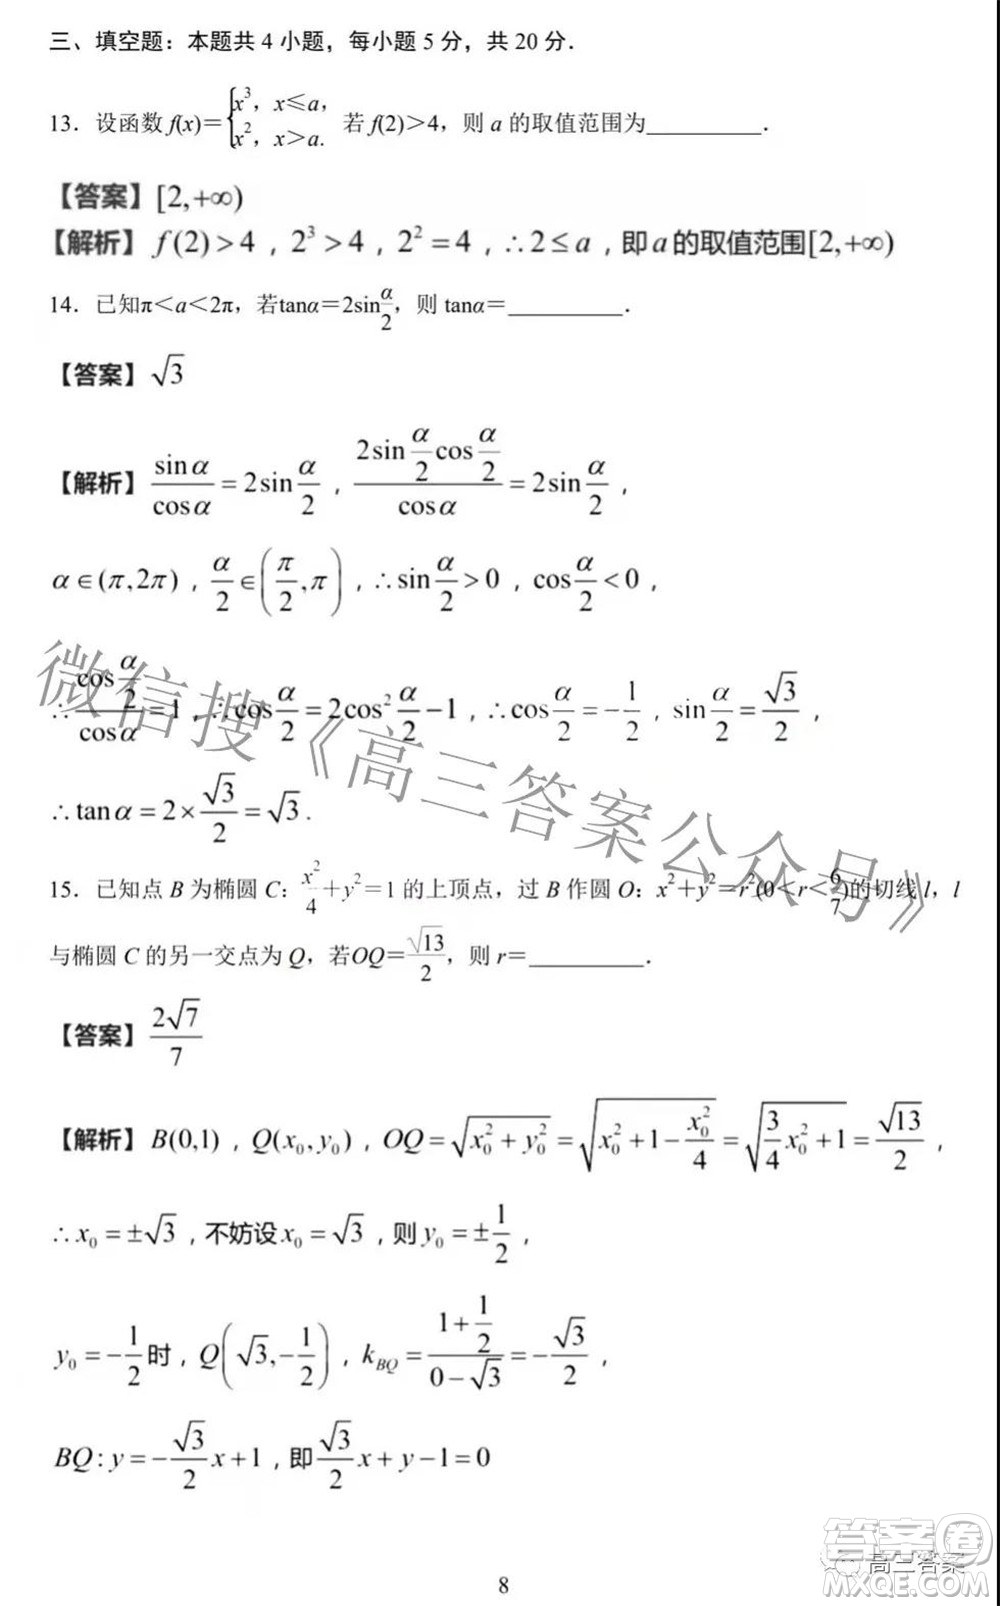 三、填空题：本题共 4 小题，每小题 5 分，共 20 分．
13．设函数 f(x)＝{x³，x≤a，x²，x＞a. 若 f(2)＞4，则 a 的取值范围为__________．
【答案】[2,+∞)
【解析】f(2)>4，2³>4，2²=4，∴2≤a，即a的取值范围[2,+∞)
14．已知π＜a＜2π，若tanα＝2sin α/2，则 tanα＝__________．
【答案】√3
【解析】sinα/cosα=2sin α/2，(2sin α/2 cos α/2)/cosα=2sin α/2，
α∈(π,2π)，α/2∈(π/2,π)，∴sin α/2>0，cos α/2<0，
∴(cos α/2)/cosα=1，∴cos α/2=2cos² α/2−1，∴cos α/2=−1/2，sin α/2=√3/2，
∴tanα=2×√3/2=√3.
15．已知点 B 为椭圆 C：x²/4＋y²＝1 的上顶点，过 B 作圆 O：x²＋y²＝r²(0＜r＜6/7)的切线 l，l
与椭圆 C 的另一交点为 Q，若OQ＝√13/2，则 r＝__________．
【答案】2√7/7
【解析】B(0,1)，Q(x₀,y₀)，OQ=√(x₀²+y₀²)=√(x₀²+1−x₀²/4)=√(3/4 x₀²+1)=√13/2，
∴x₀=±√3，不妨设x₀=√3，则y₀=±1/2，
y₀=−1/2时，Q(√3,−1/2)，k_BQ=(1+1/2)/(0−√3)=−√3/2，
BQ:y=−√3/2 x+1，即√3/2 x+y−1=0
微信搜《高三答案公众号》
答案圈
高三答案
MXQE.COM
8